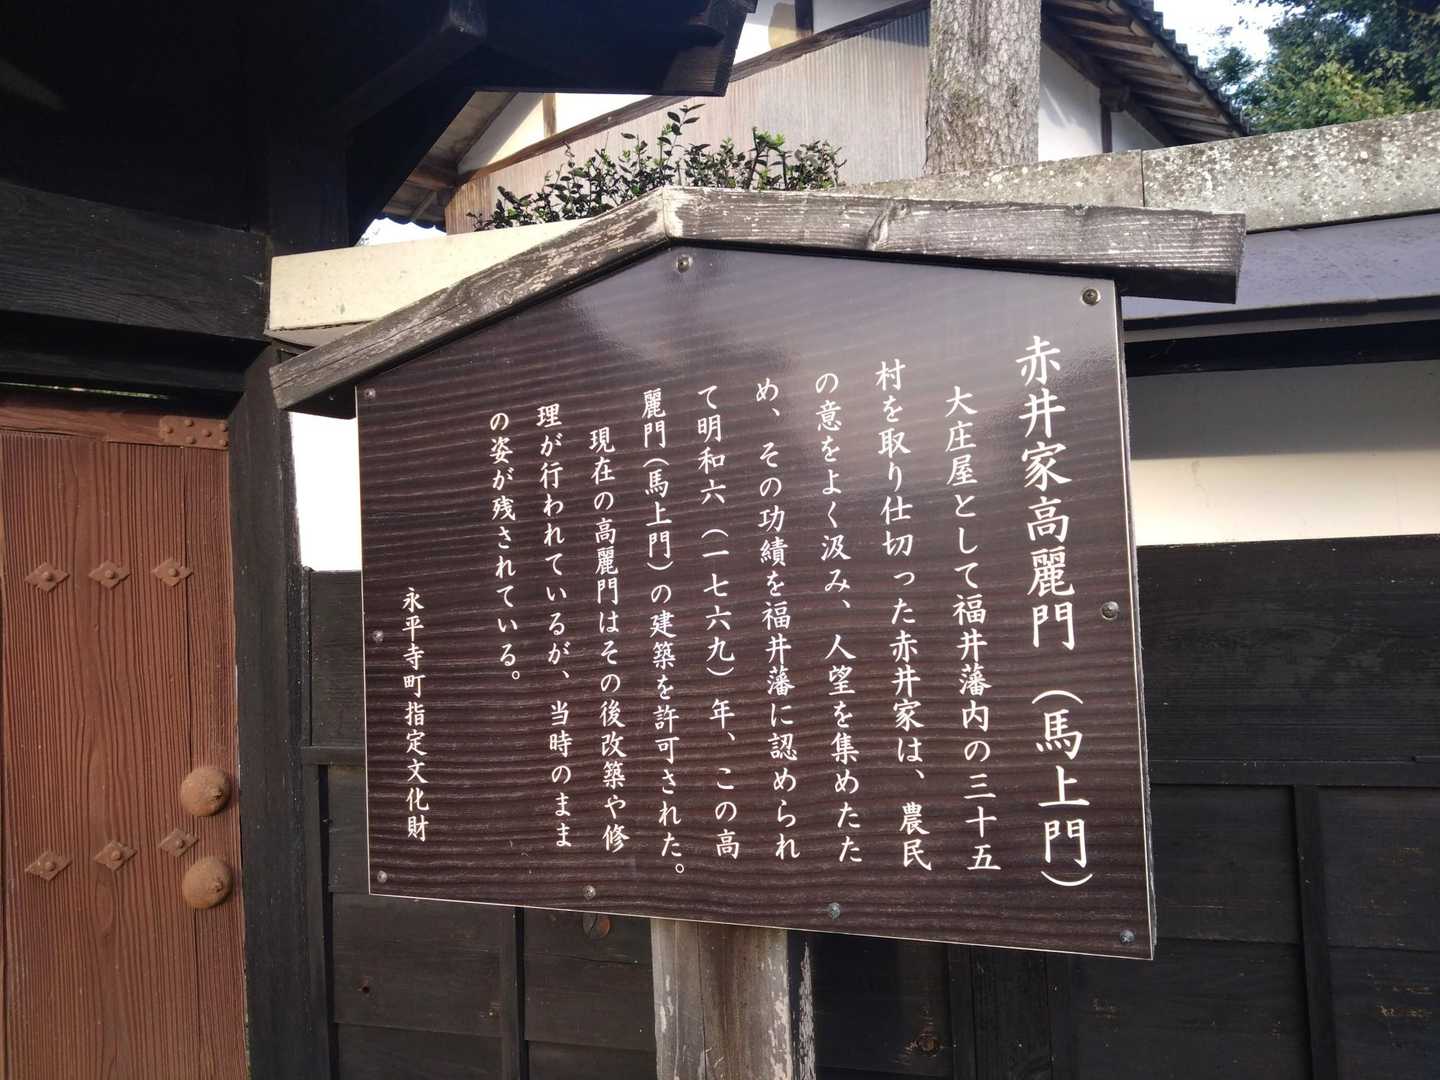 赤井家高麗門（馬上門）
大庄屋として福井藩内の三十五
村を取り仕切った赤井家は、農民
の意をよく汲み、人望を集めたた
め、その功績を福井藩に認められ
て明和六（一七六九）年、この高
麗門（馬上門）の建築を許可された。
現在の高麗門はその後改築や修
理が行われているが、当時のまま
の姿が残されている。
永平寺町指定文化財